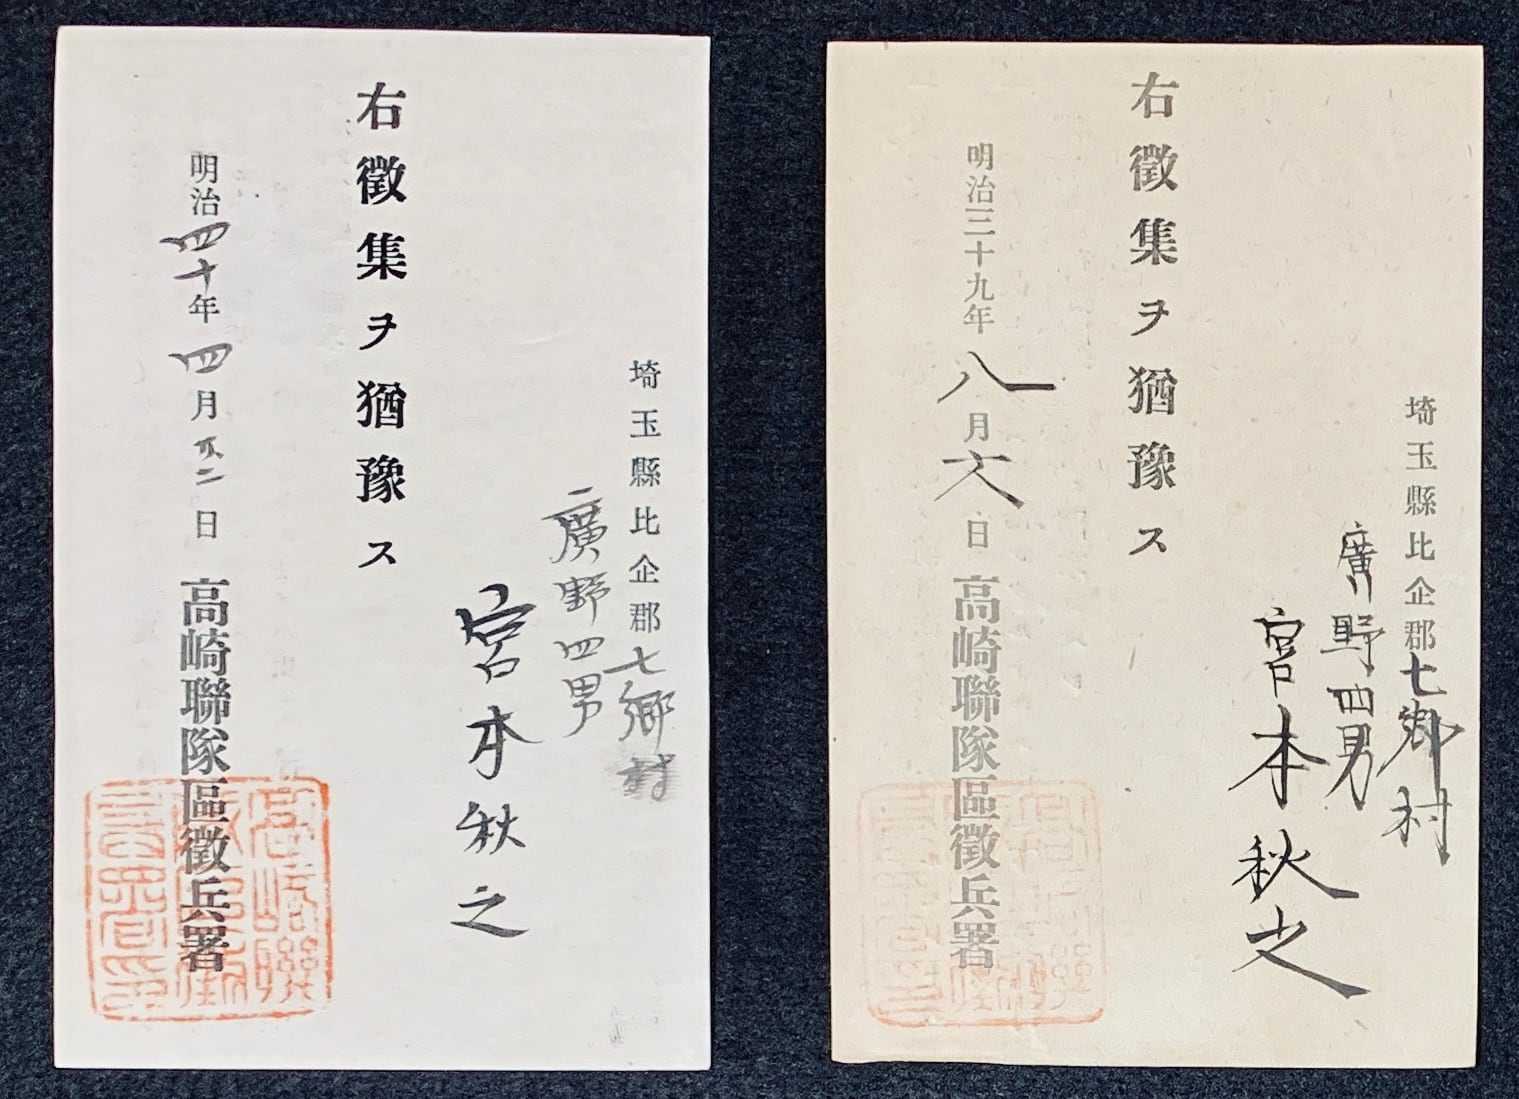 埼玉縣比企郡七郷村
廣野四男
宮本秋之
右徵集ヲ猶豫ス
明治三十九年八月六日 高崎聯隊區徵兵署
埼玉縣比企郡七郷村
廣野四男
宮本秋之
右徵集ヲ猶豫ス
明治四十年四月 日 高崎聯隊區徵兵署